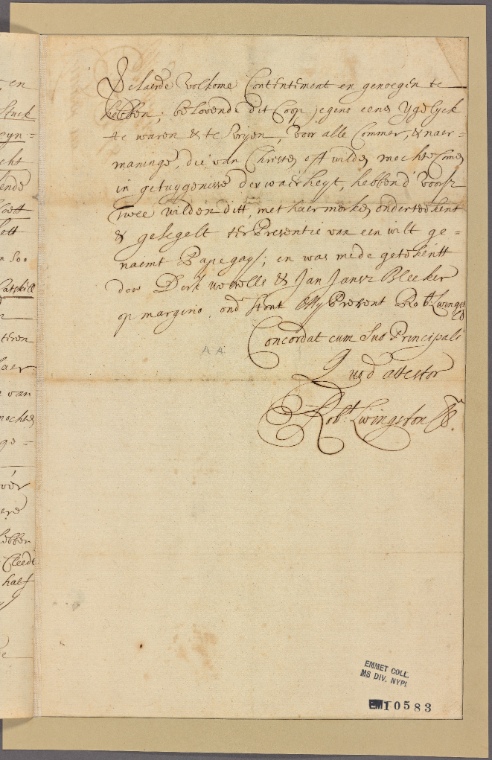 Sclaerde volkome Contentement en genoegen te
hebben; beloovende dit Coop jegens eenen ygelyck
te waren & te vryen, voor alle Commer, & naer-
maninge, die van Christen off wilden mochte Comen
in getuygenisse der waerheyt, hebben de voorsz
Twee wilden ditt, met haer merken ondertekent
& geseegelt ter Presentie van een wilt ge-
naemt Papegay; en was mede getekentt
door Dirk & Jan Jansz Bleeker
op margine, ond stont My Present Robt. Livingston
Concordat cum Suo Principali
Quod attestor
Robt. Livingston
en
cht
ende
van
half
EMMET COLL.
MS DIV. NYPL
10583